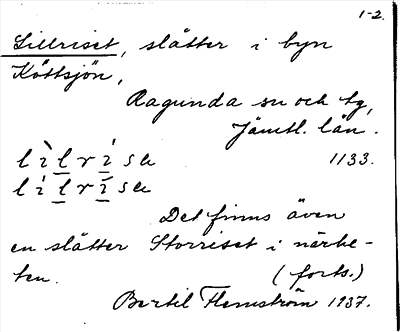 1-2.
Lillriset, slåtter i byn
Köttsjön,
Ragunda sn och tg,
Jämtl. län.
1133.
Det finns även
en slåtter Storriset i närhe-
ten. (forts.)
Bertil Flemström 1937.